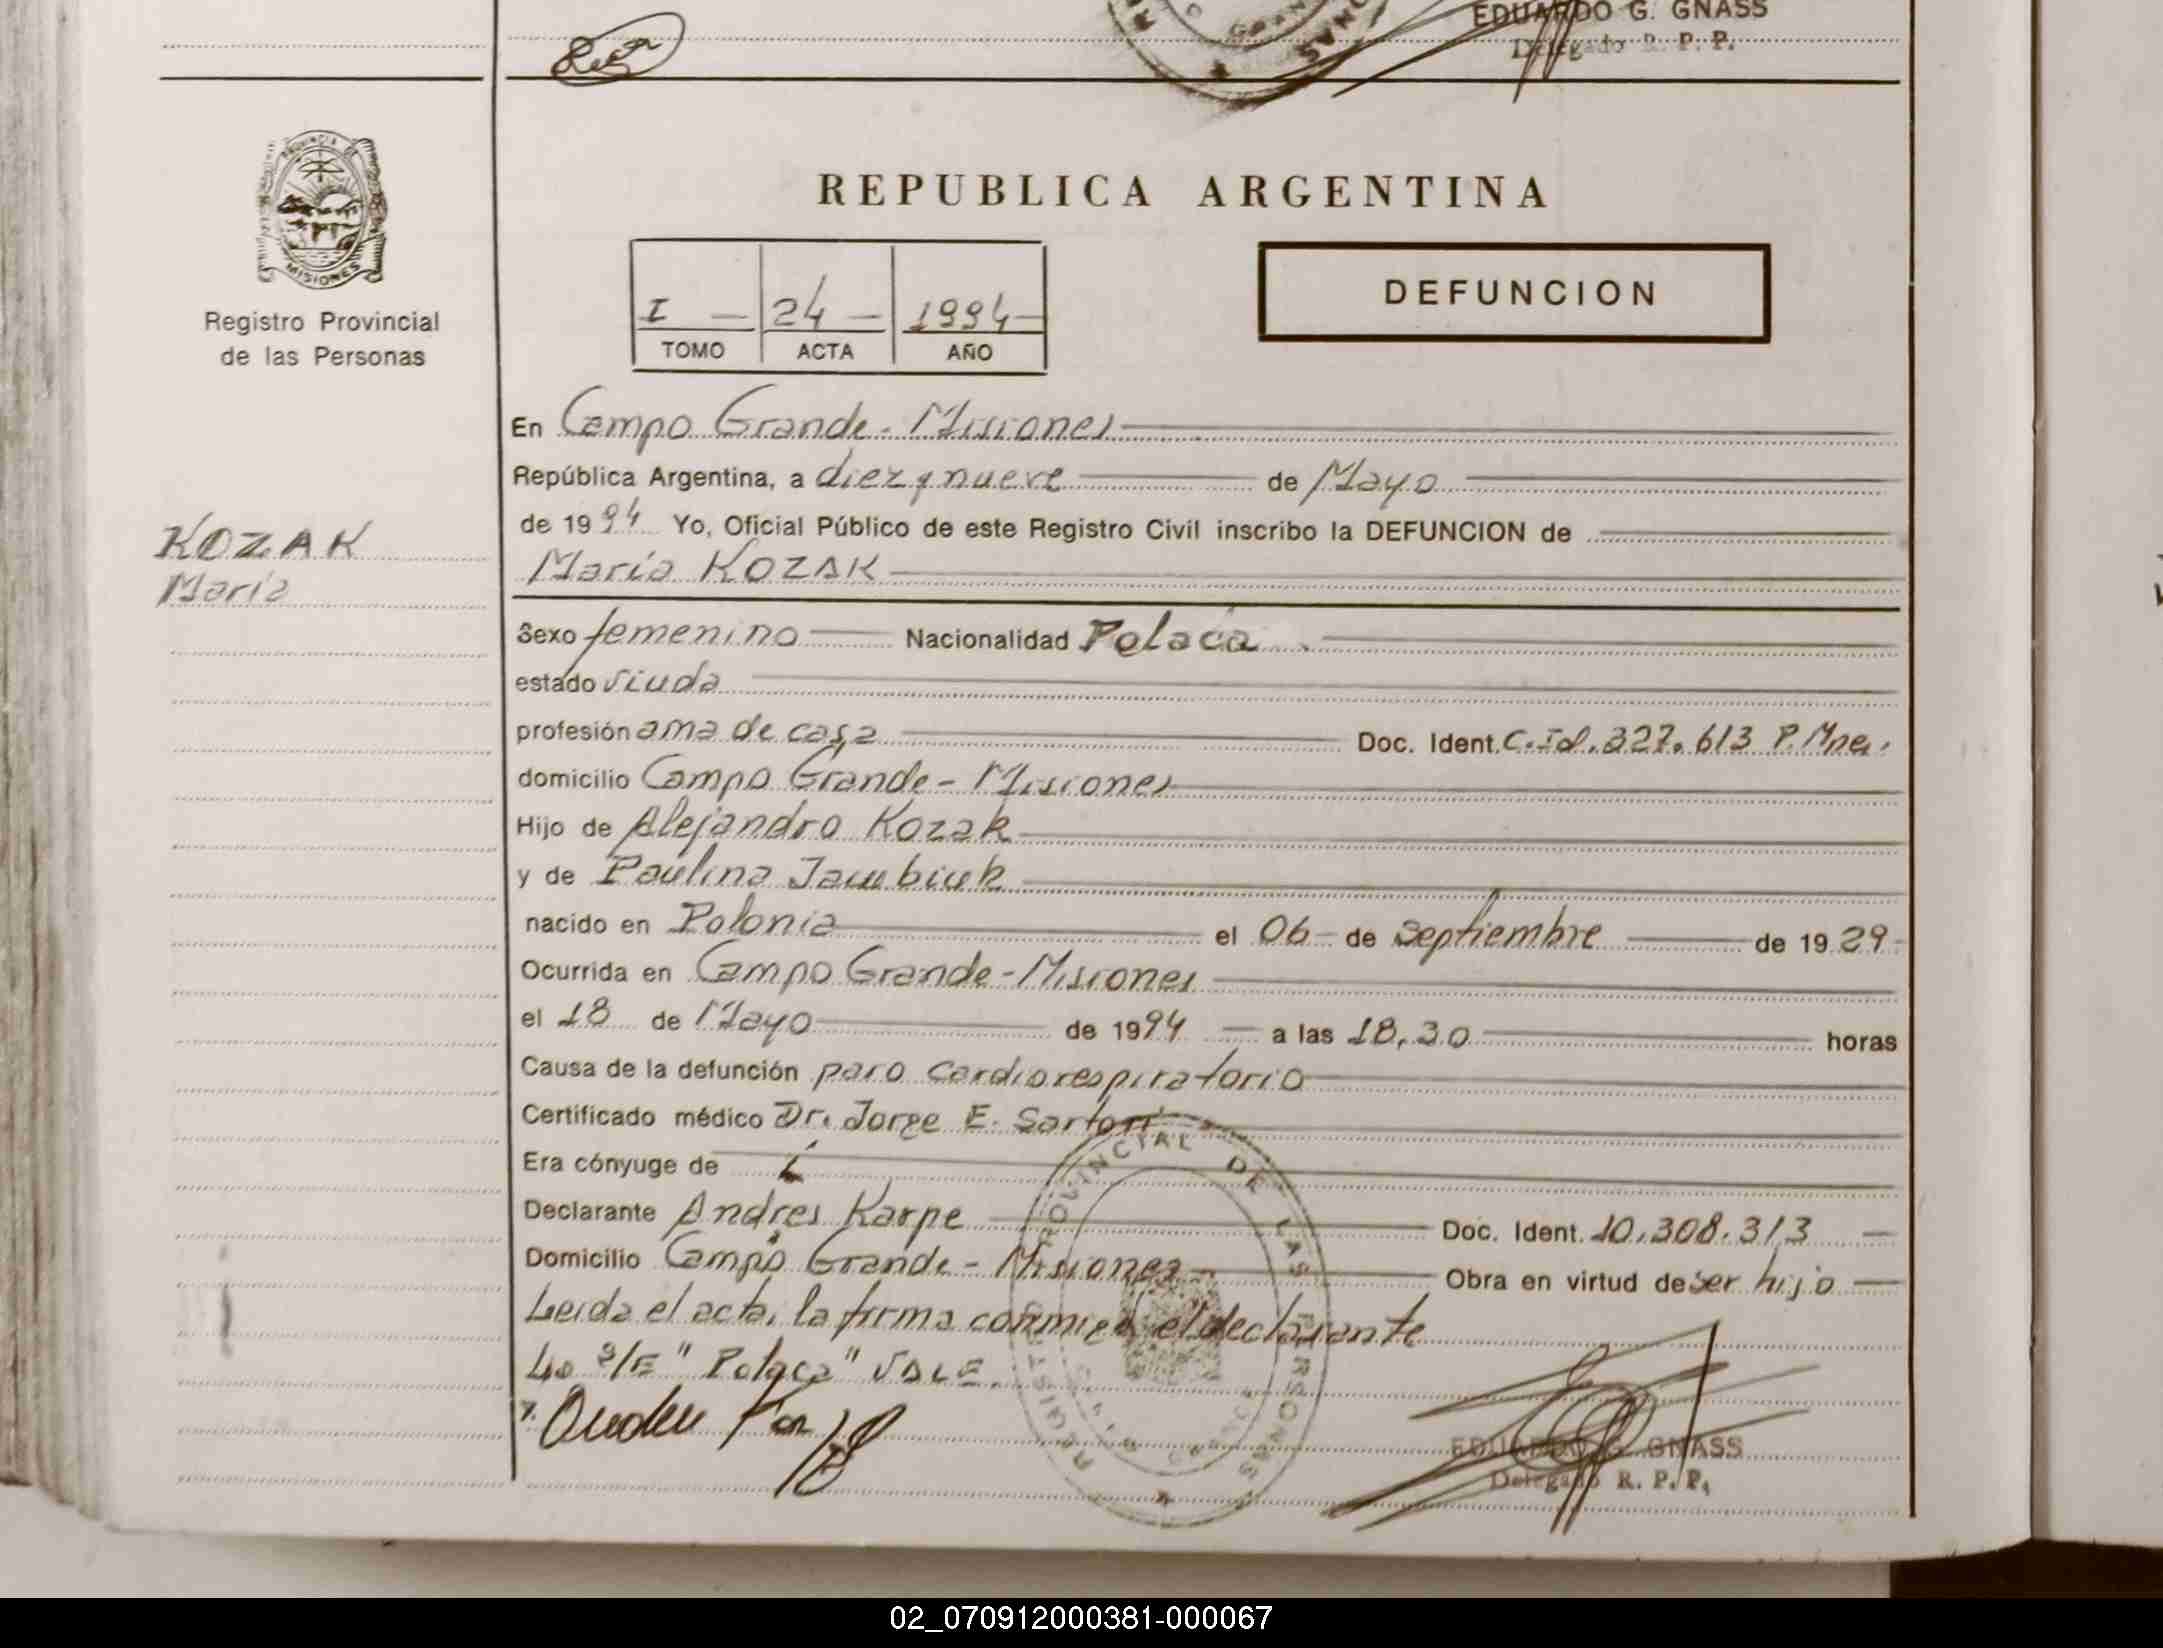 EDUARDO G. GNASS
Delegado R. P. P.
PROVINCIA DE
MISIONES
Registro Provincial
de las Personas
REPUBLICA ARGENTINA
I — 24 — 1994 —
TOMO ACTA AÑO
DEFUNCION
En Campo Grande - Misiones
República Argentina, a diez y nueve de Mayo
de 1994 Yo, Oficial Público de este Registro Civil inscribo la DEFUNCION de
María KOZAK
KOZAK
María
Sexo femenino Nacionalidad Polaca
estado viuda
profesión ama de casa Doc. Ident. C.Id. 327.613 P. Mnes.
domicilio Campo Grande - Misiones
Hijo de Alejandro Kozak
y de Paulina
nacido en Polonia el 06 de septiembre de 1929
Ocurrida en Campo Grande - Misiones
el 18 de Mayo de 1994 a las 18,30 horas
Causa de la defunción paro cardiorespiratorio
Certificado médico Dr. Jorge E. Sartori
Era cónyuge de
Declarante Andres Karpe Doc. Ident. 10.308.313
Domicilio Campo Grande - Misiones Obra en virtud de ser hijo
Leida el acta, la firma conmigo el declarante
Lo S/E "Polaca" VALE.
REGISTRO PROVINCIAL DE LAS PERSONAS
EDUARDO G. GNASS
Delegado R. P. P.
02_070912000381-000067